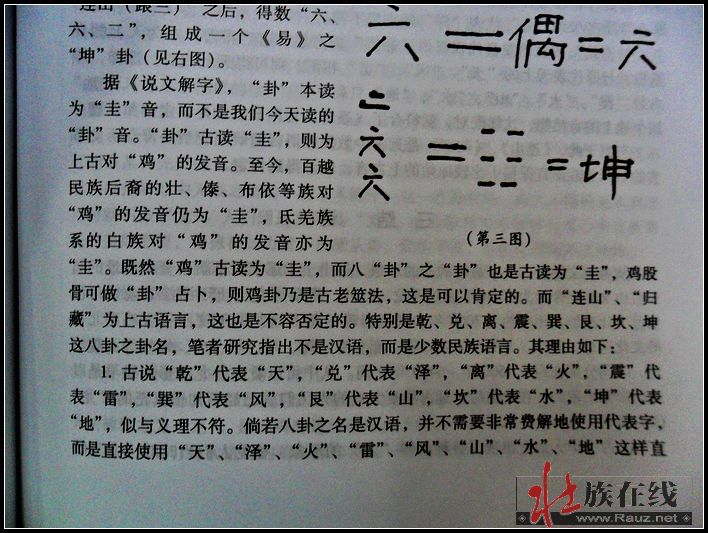 连山（跟三）”之后，得数“六、
六、二”，组成一个《易》之
“坤”卦（见右图）。
据《说文解字》，“卦”本读
为“圭”音，而不是我们今天读的
“卦”音。“卦”古读“圭”，则为
上古对“鸡”的发音。至今，百越
民族后裔的壮、傣、布依等族对
“鸡”的发音仍为“圭”，氐羌族
系的白族对“鸡”的发音亦为
“圭”。既然“鸡”古读为“圭”，而八“卦”之“卦”也是古读为“圭”，鸡股
骨可做“卦”占卜，则鸡卦乃是古老筮法，这是可以肯定的。而“连山”、“归
藏”为上古语言，这也是不容否定的。特别是乾、兑、离、震、巽、艮、坎、坤
这八卦之卦名，笔者研究指出不是汉语，而是少数民族语言。其理由如下：
1. 古说“乾”代表“天”，“兑”代表“泽”，“离”代表“火”，“震”代
表“雷”，“巽”代表“风”，“艮”代表“山”，“坎”代表“水”，“坤”代表
“地”，似与义理不符。倘若八卦之名是汉语，并不需要非常费解地使用代表字，
而是直接使用“天”、“泽”、“火”、“雷”、“风”、“山”、“水”、“地”这样直
六 = 偶 = 六
二
六
六
= ☷ = 坤
（第三图）
壮族在线
www.Rauz.net